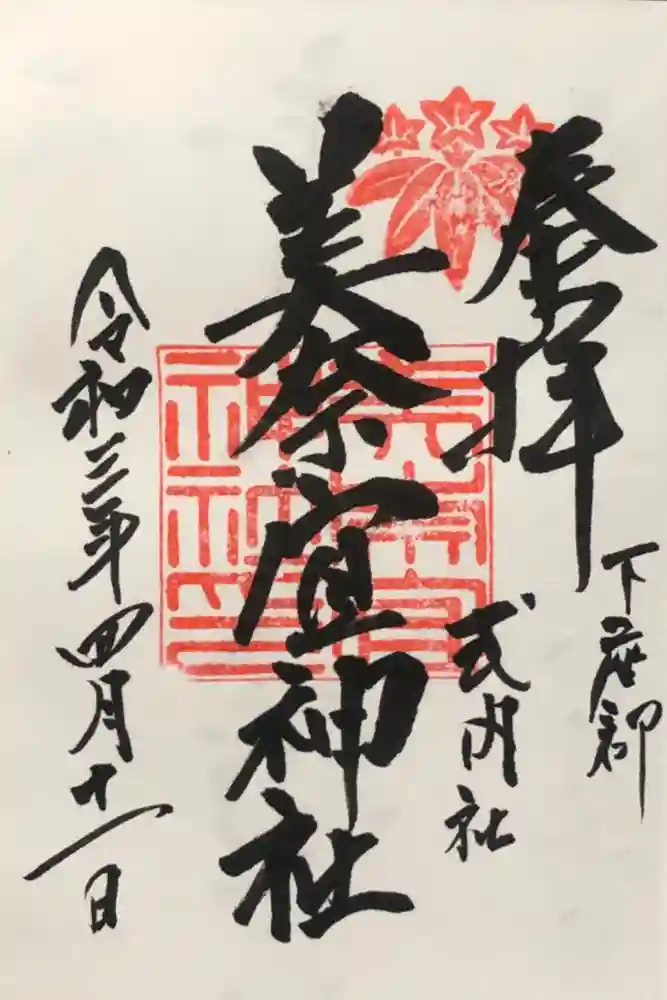 奉拝
下座郡
式内社
美奈宜神社
美奈宜
神社印
令和三年四月十一日